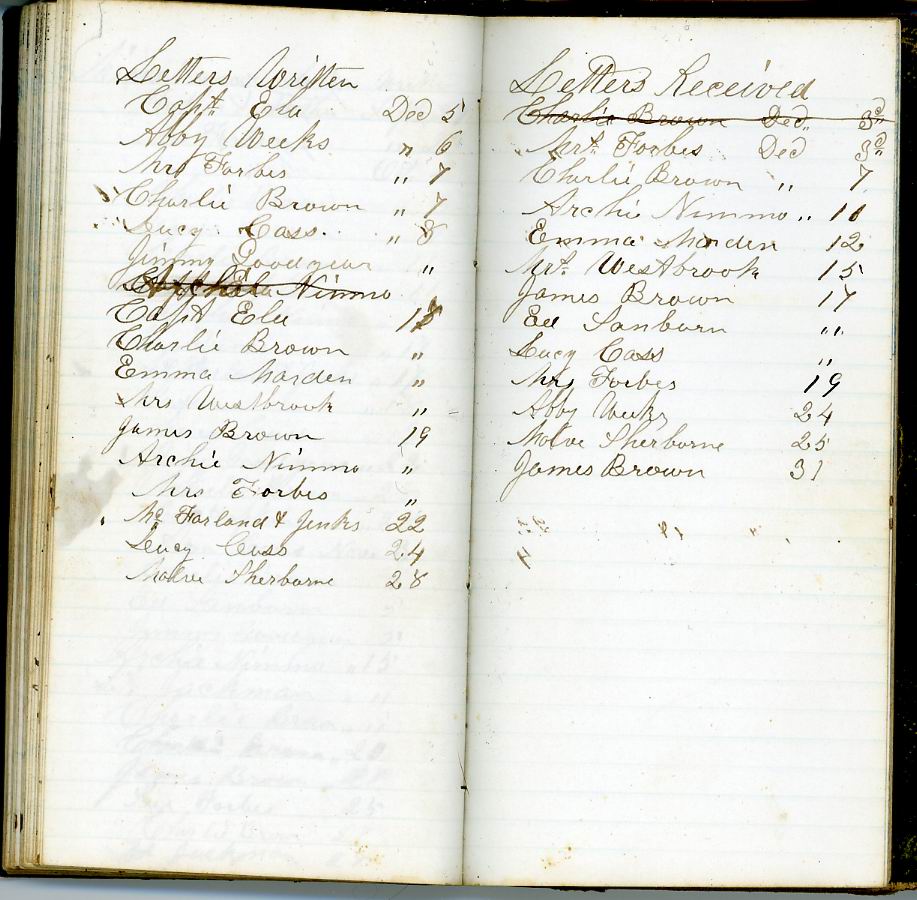 Letters Written
Capt Ela Dec 5
Abby Weeks " 6
Mrs Forbes " 7
Charlie Brown " 7
Lucy Cass " 8
Jimmy Goodyear "
Nimmo
Capt Ela 18
Charlie Brown "
Emma Marden "
Mrs Westbrook "
James Brown 19
Archie Nimmo "
Mrs Forbes "
Mc Farland & Jenks 22
Lucy Cass 24
Melve Sherborne 28
Letters Received
Charlie Brown Dec. 3d
Mrs. Forbes Dec 3d
Charlie Brown " 7
Archie Nimmo " 10
Emma Marden 12
Mrs. Westbrook 15
James Brown 17
Ed Sanborn "
Lucy Cass "
Mrs Forbes 19
Abby Weeks 24
Melve Sherborne 25
James Brown 31